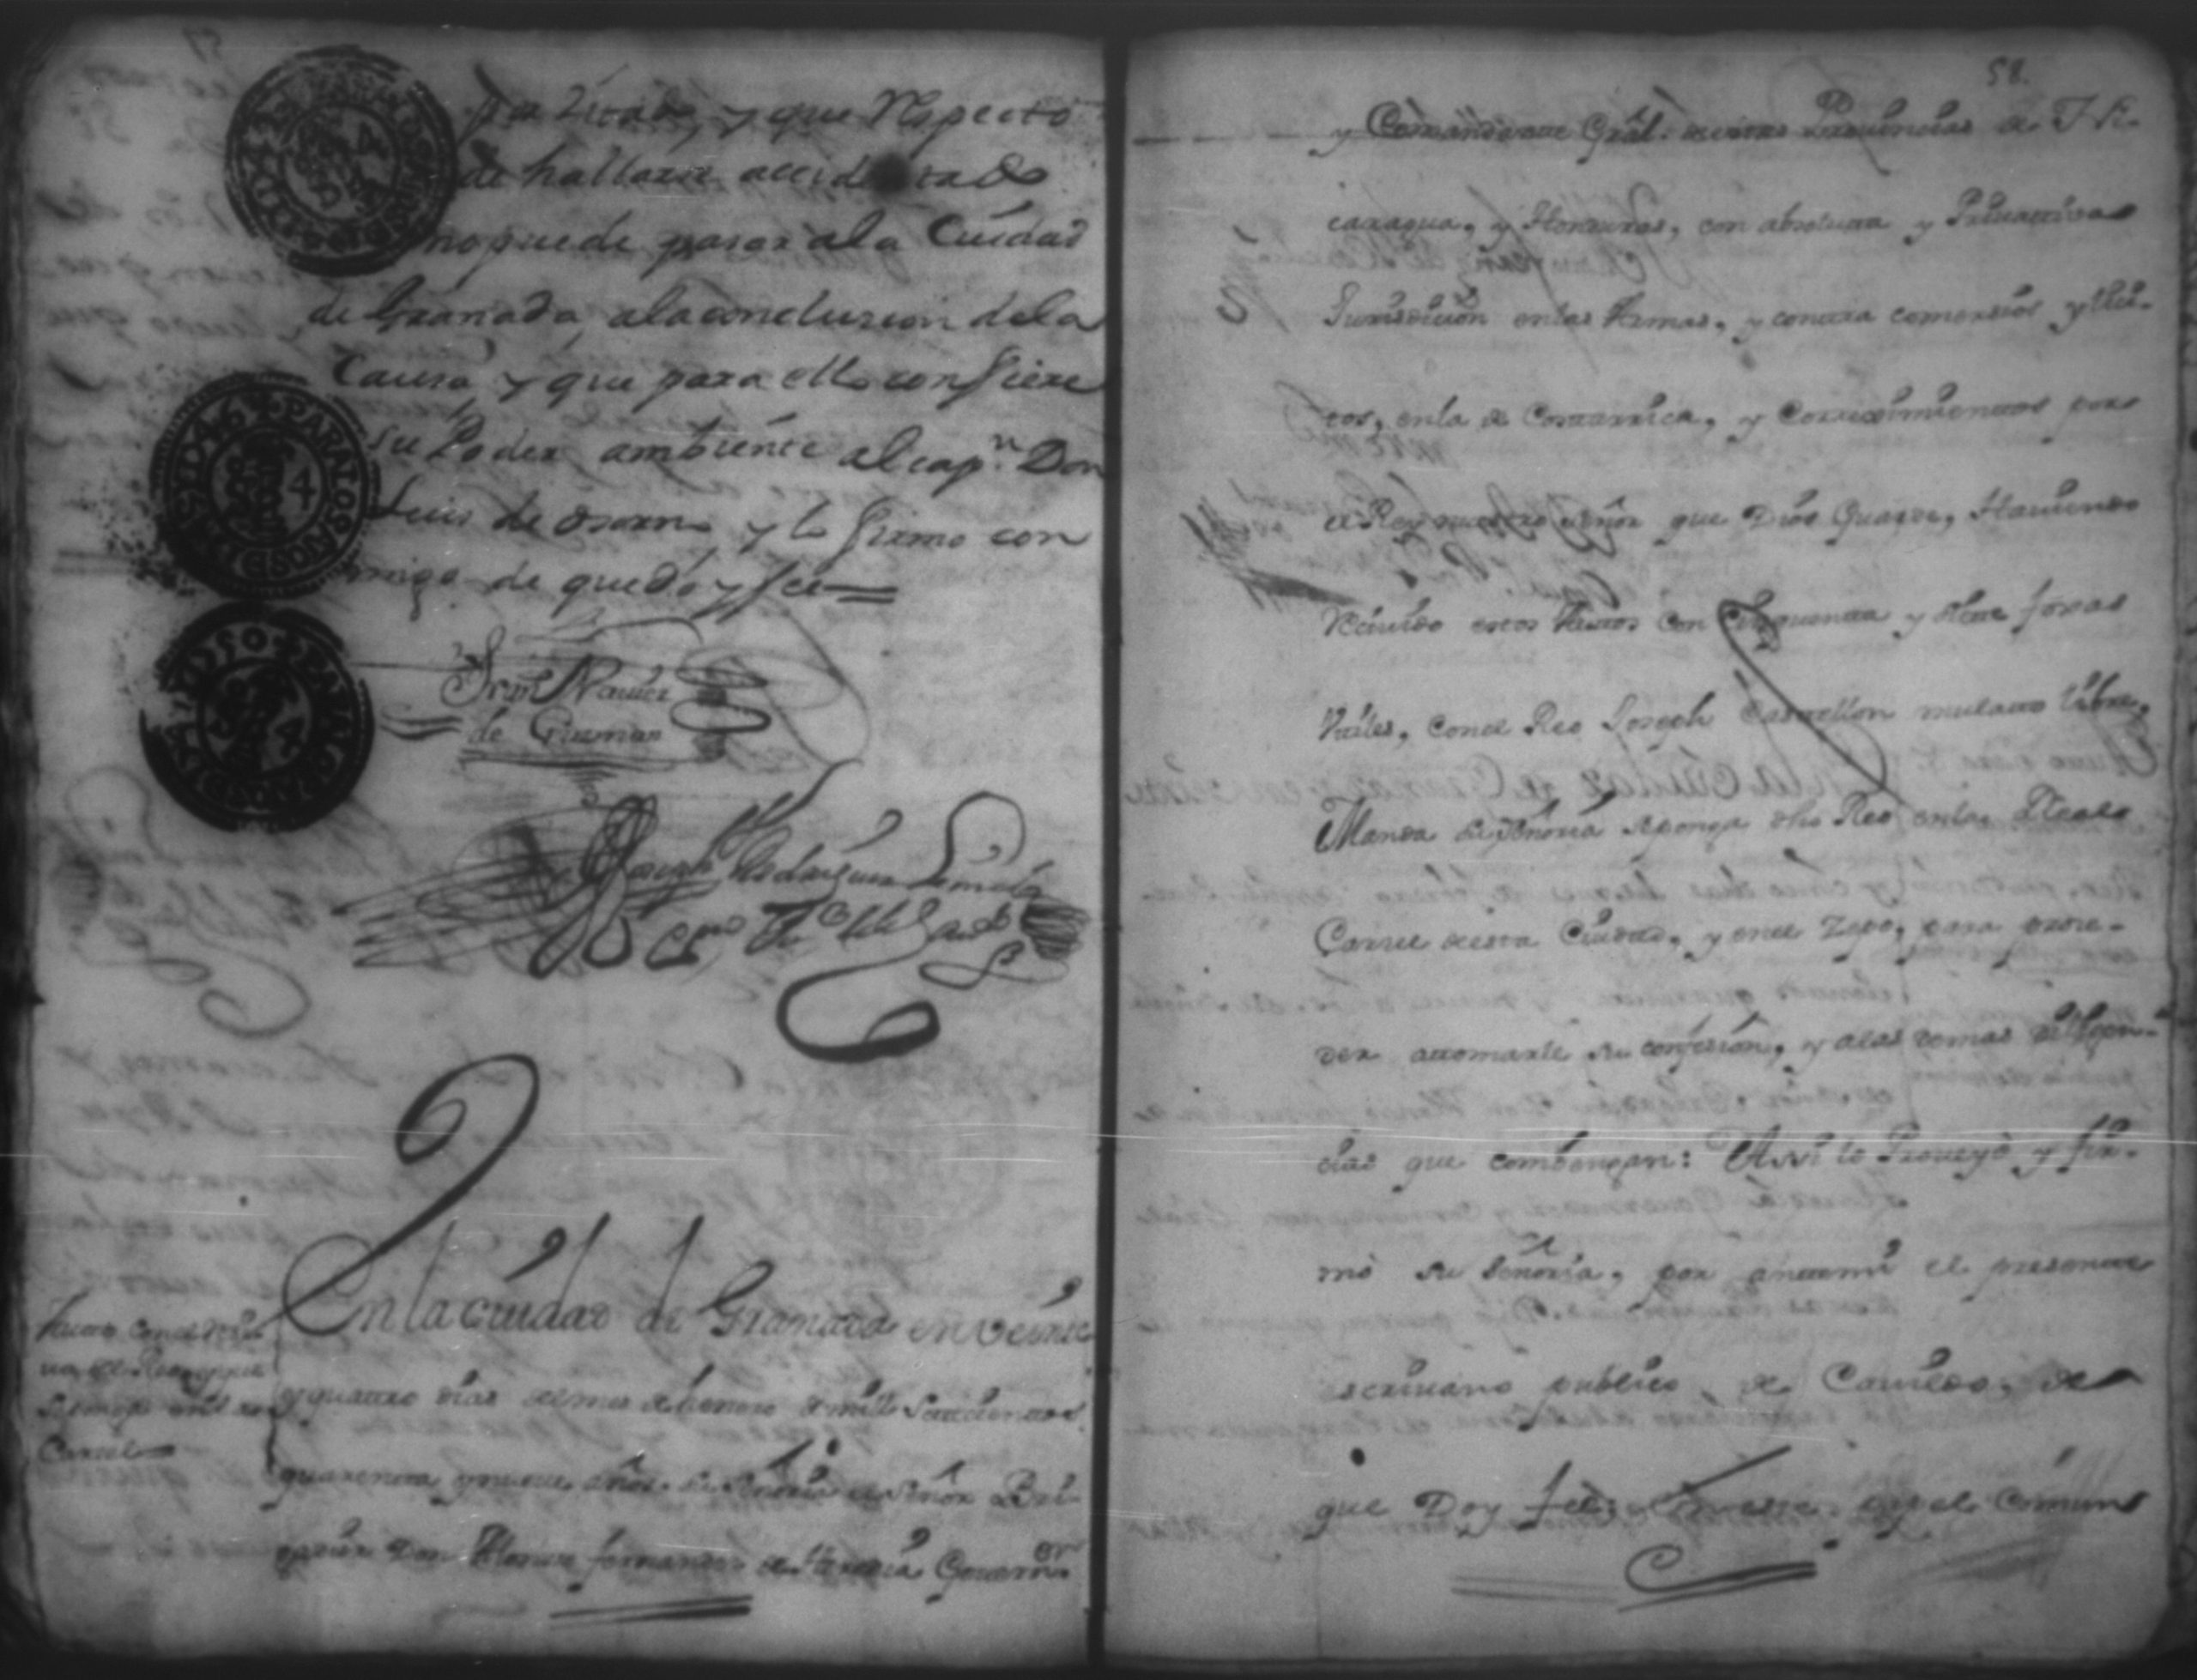 y que respecto
de hallarse accidentado
no puede pasar ala Ciudad
de Granada, ala concluzion dela
Causa, y que para ello confiere
su Poder ambiente al cap.n Don
Luis de osorno y lo firmo con
migo de quedoy fee
Fran.co Nauas
de Guzman
Joseph
En la ciudad de Granada en veinte
y quattro dias del mes de henero de mill settecientos
quarenta y nueue años. Su Señoria el señor Bri-
gadier Don Alonso fernandez de Heredia Gouern.or
Carcel
58.
y Comandante Gral. destas Prouincias de Ni-
caragua, y Honduras, con absoluta y Priuattiua
Jurisdicion en las Armas, y contra comersios yllici-
tos, en la de Costarrica, y Corregimientos por
el Rey nuestro señor que Dios Guarde, Hauiendo
Reciuido estos Auttos con Cinquenta y siette foxas
vtiles, con el Reo Joseph Castellon mulatto libre,
Manda su señoria se ponga dho Reo en la Real
Carcel desta Ciudad, y en el Zepo, para proce-
der attomarle su confesion, y alas demas dilixen-
cias que combengan: Assi lo Proueyo y fir-
mo su Señoria, por antemi el presente
scriuano publico, de Cauildo, de
que Doy fee: papel Comun